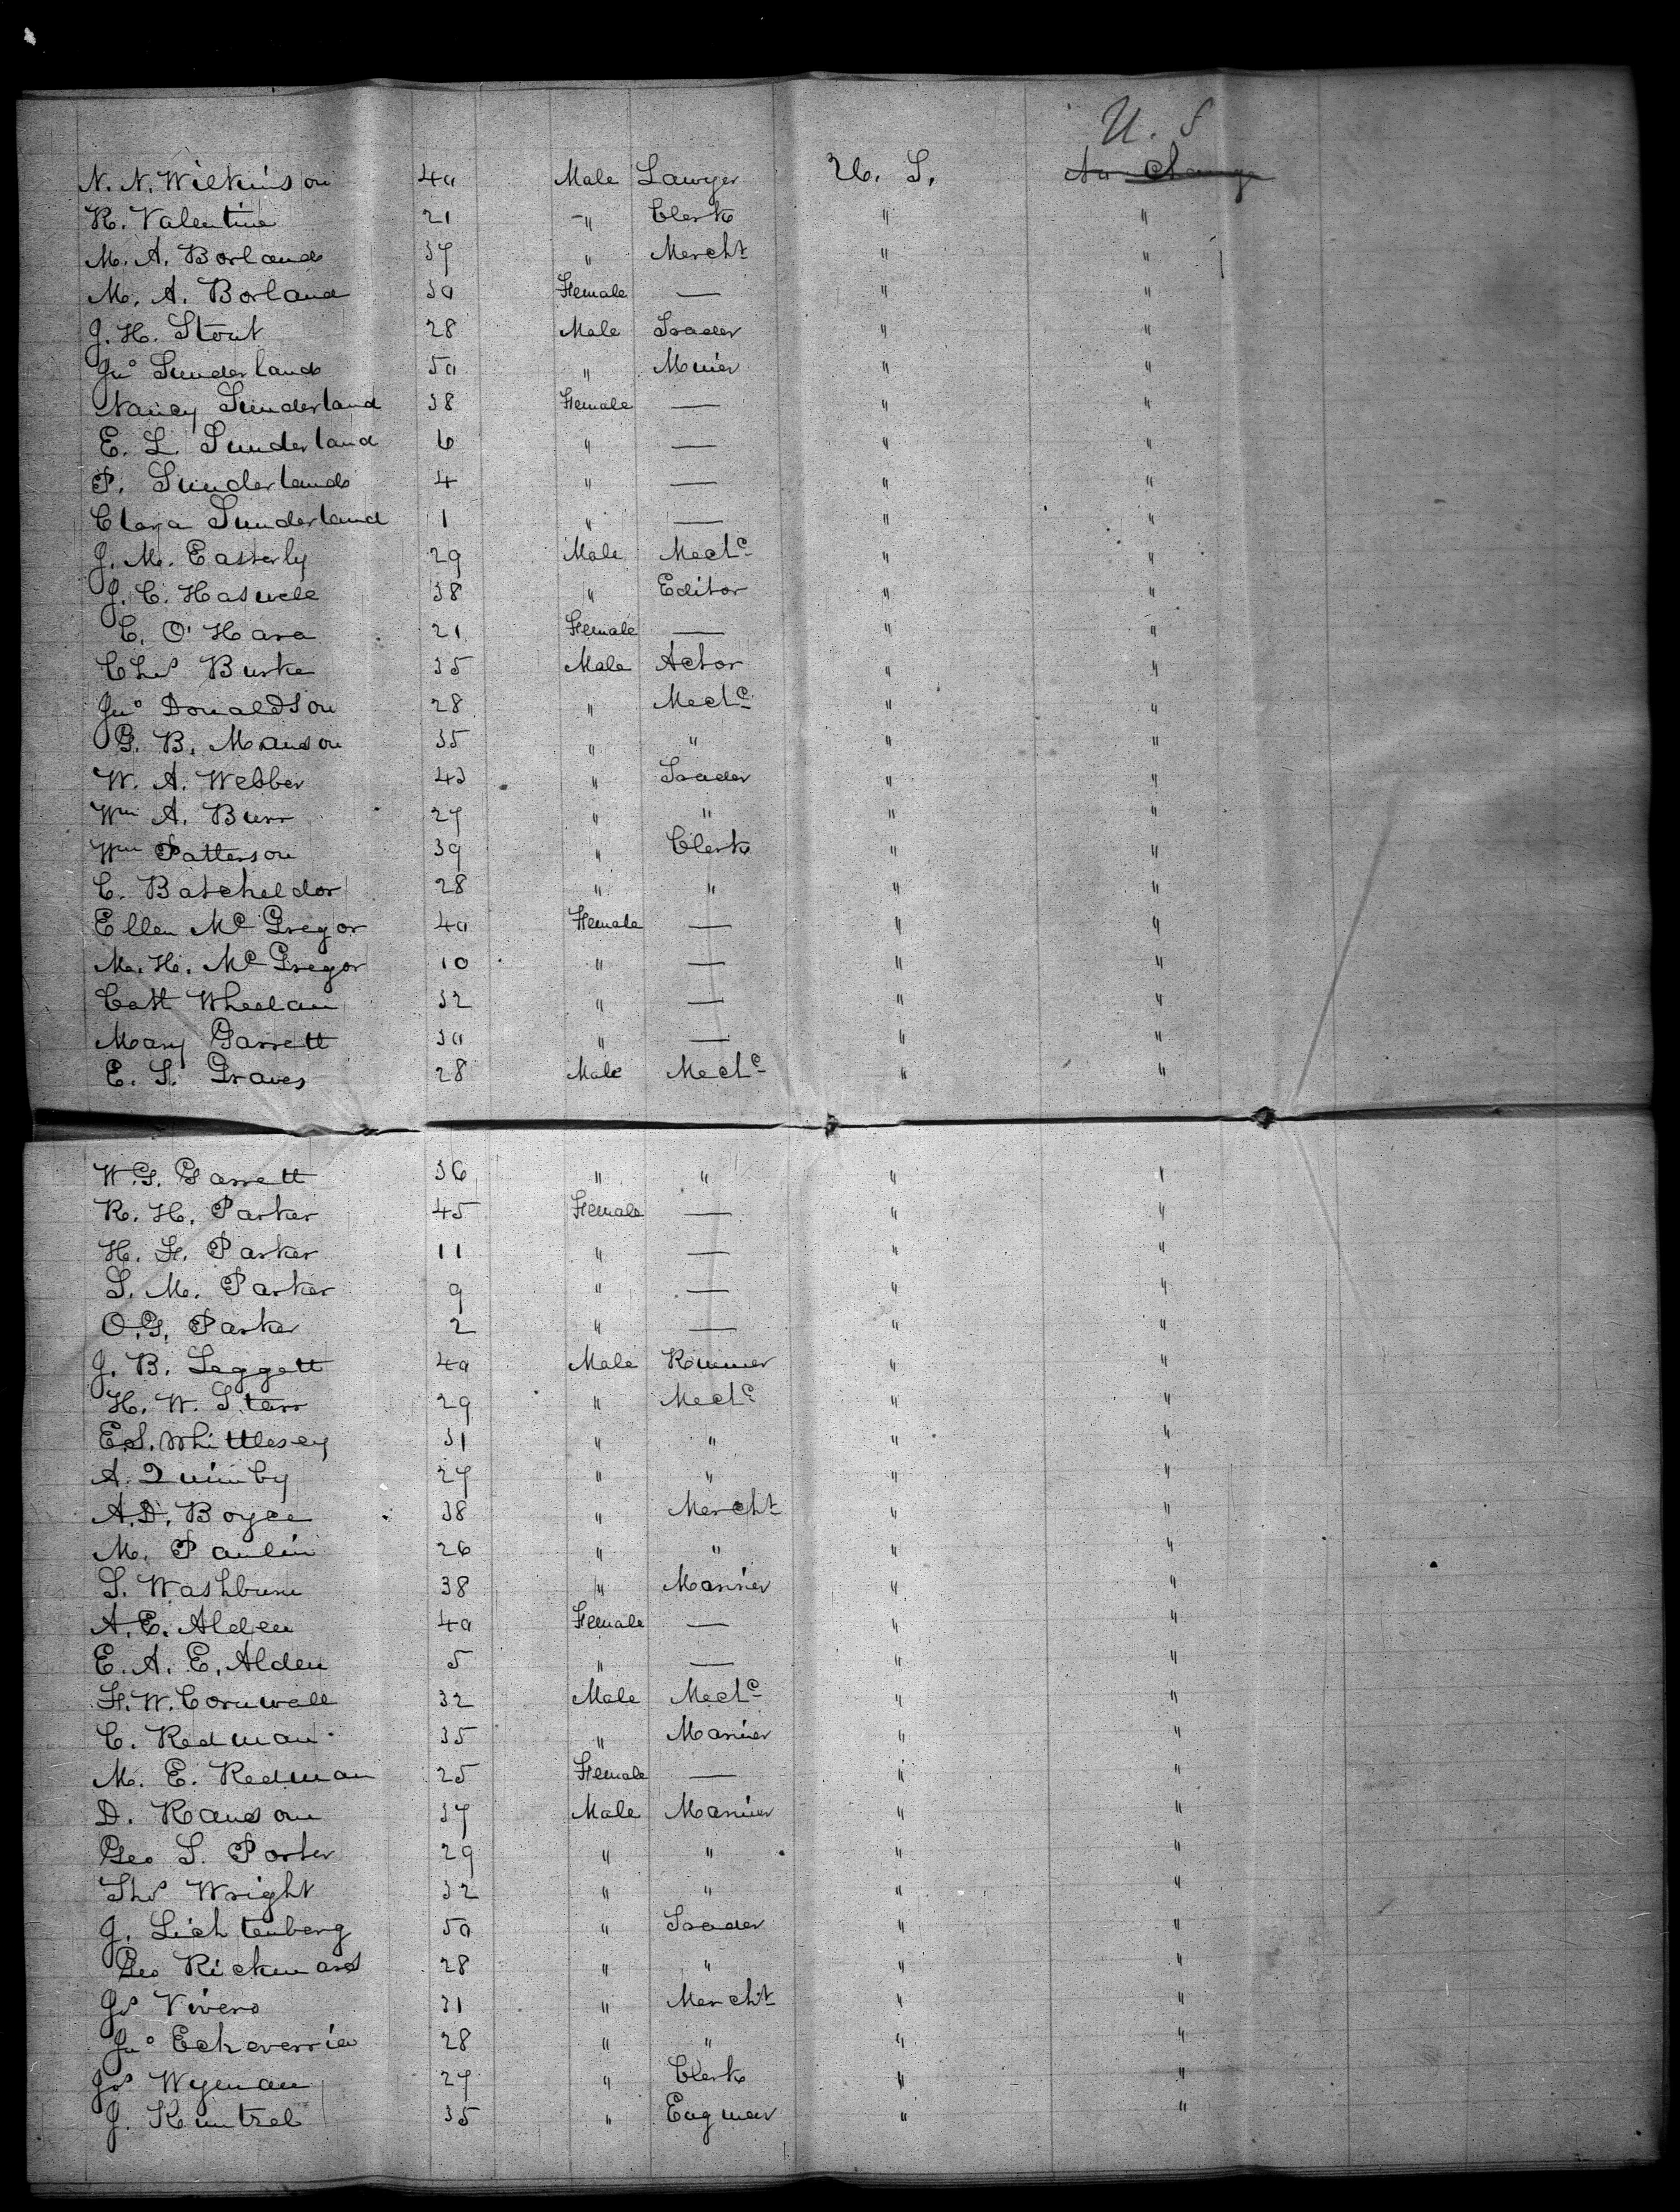 U. S
N. N. Wilkinson 40 Male Lawyer U. S. No change
R. Valentine 21 " Clerk " "
M. A. Borland 37 " Mercht " "
M. A. Borland 30 Female — " "
J. H. Stout 28 Male Trader " "
Jno Sunderland 50 " Miner " "
Nancy Sunderland 38 Female — " "
E. L. Sunderland 6 " — " "
P. Sunderland 4 " — " "
Clara Sunderland 1 " — " "
J. M. Easterly 29 Male Mechc " "
J. C. Haswell 38 " Editor " "
C. O'Hara 21 Female — " "
Chs Burke 35 Male Actor " "
Jno Donaldson 28 " Mechc " "
G. B. Manson 35 " " " "
W. A. Webber 43 " Trader " "
Wm A. Burr 27 " " " "
Wm Patterson 39 " Clerk " "
C. Batcheldor 28 " " " "
Ellen McGregor 40 Female — " "
M. H. McGregor 10 " — " "
Cath Wheelan 32 " — " "
Mary Garrett 30 " — " "
E. S. Graves 28 Male Mechc " "
W. G. Garrett 36 " " " "
R. H. Parker 45 Female — " "
H. F. Parker 11 " — " "
S. M. Parker 9 " — " "
O. G. Parker 2 " — " "
J. B. Leggett 40 Male " "
H. W. Starr 29 " Mechc " "
E. S. Whittlesey 31 " " " "
A. Quimby 27 " " " "
A. D. Boyce 38 " Mercht " "
M. Paulin 26 " " " "
S. Washburn 38 " Marinier " "
A. E. Alden 40 Female — " "
E. A. E. Alden 5 " — " "
F. W. Cornwall 32 Male Mechc " "
C. Redman 35 " Marinier " "
M. E. Redman 25 Female — " "
D. Ransom 37 Male Marinier " "
Geo S. Porter 29 " " " "
Ths Wright 32 " " " "
J. Lichtenberg 50 " Trader " "
Geo Rickmard 28 " " " "
Js Vivero 31 " Mercht " "
Jno Echeverria 28 " " " "
Jos Wyman 27 " Clerk " "
J. Kuntzel 35 " " "